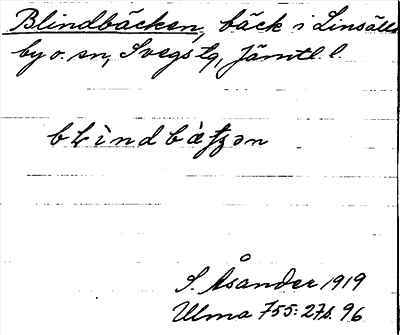 Blindbäcken, bäck i Linsälls
by o. sn, Svegs tg, Jämtl. l.
S. Åsander 1919
Ulma 755: 27b. 96